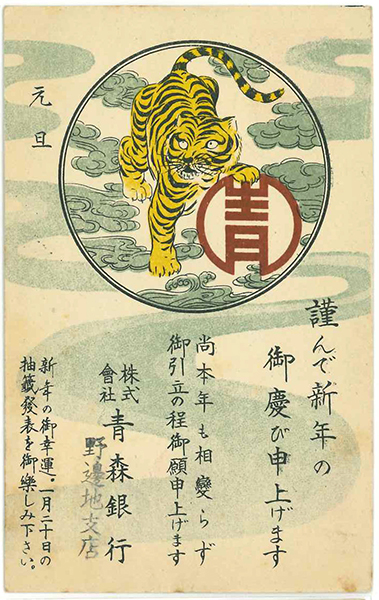 謹んで新年の
御慶び申上げます
尚本年も相變らず
御引立の程御願申上げます
株式會社 青森銀行
野邊地支店
新年の御幸運。一月二十日の
抽籤發表を御樂しみ下さい。
元旦
青